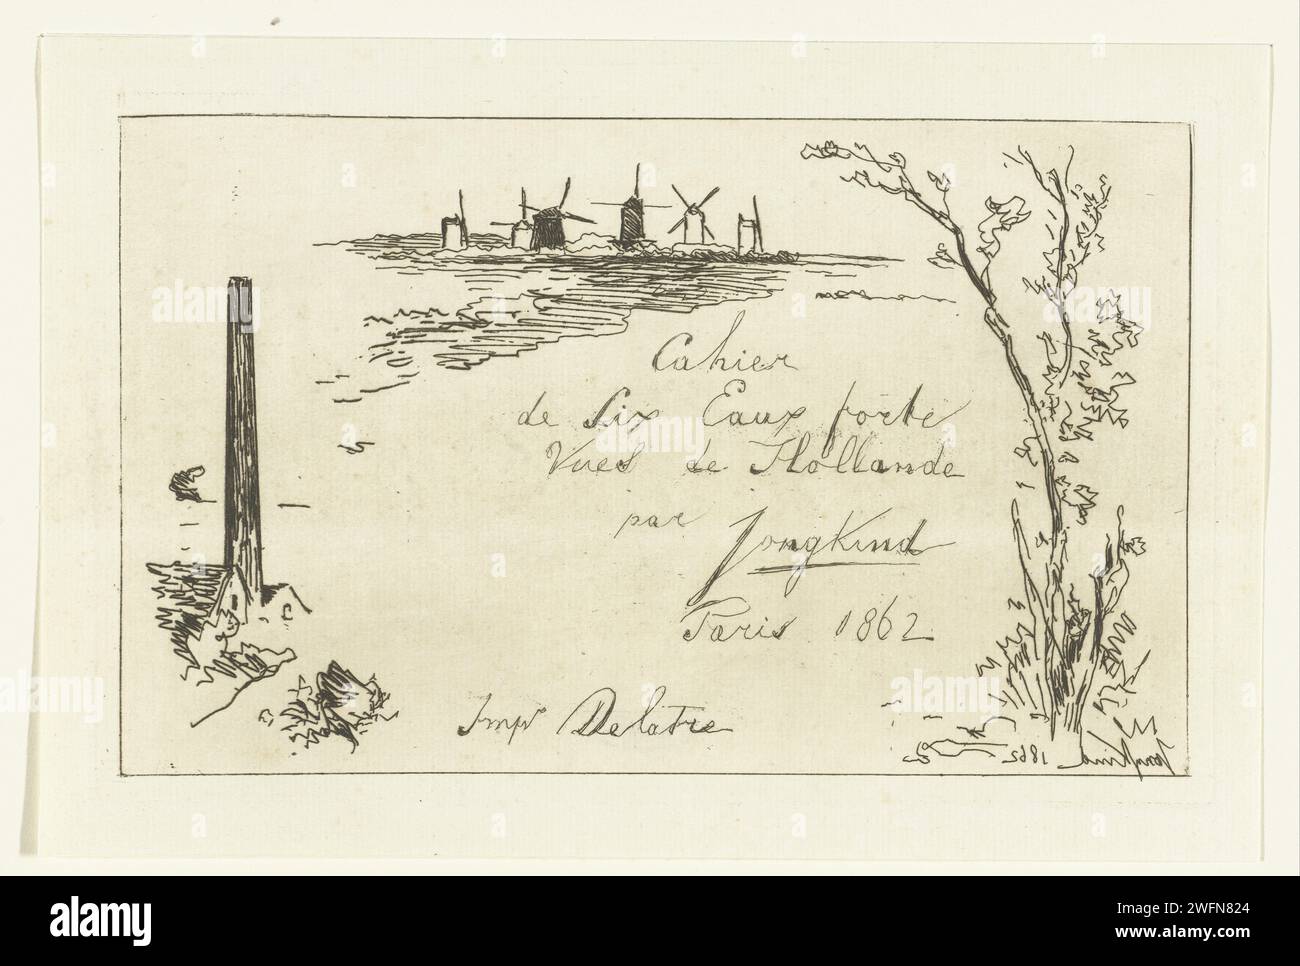 Cahier
de Six Eaux forte
Vues de Hollande
par Jongkind
Paris 1862
Impr Delatre
Jongkind 1862
alamy
Image ID: 2WFN824
www.alamy.com